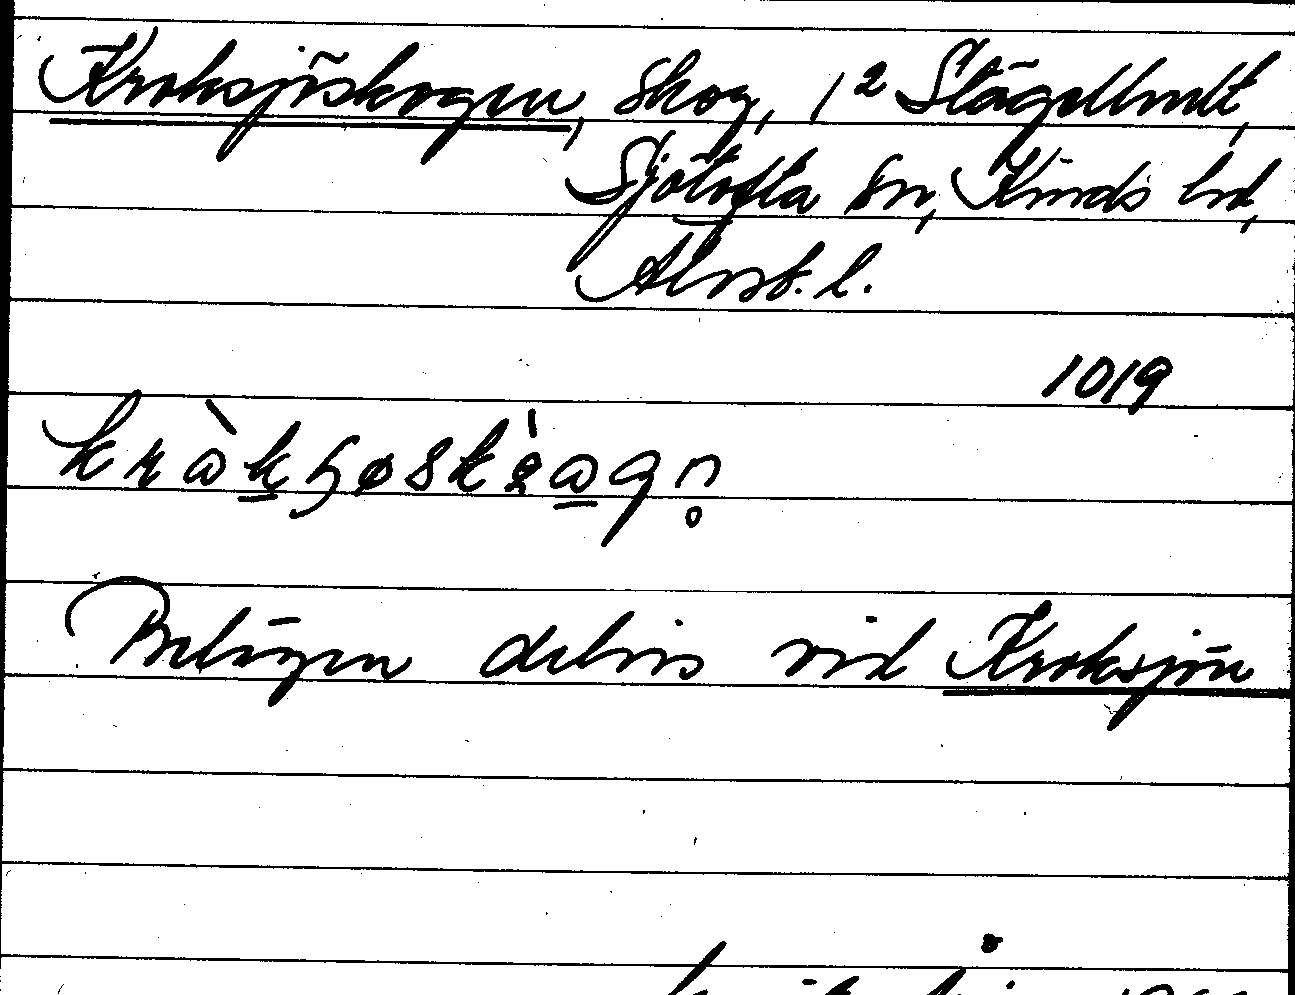 Kroksjöskogen, skog, 1² Stägelhult,
Sjötofta sn, Kinds hd,
Älvsb. l.
1019
Belägen delvis vid Kroksjön